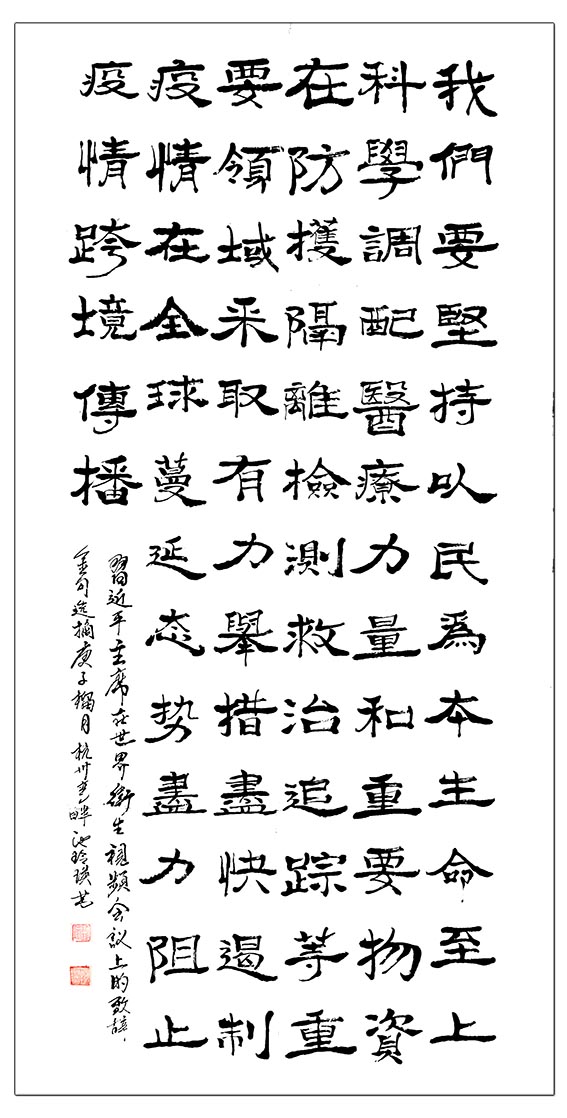 我們要堅持以民爲本生命至上
科學調配醫療力量和重要物資
在防擭隔離檢測救治追踪等重
要領域采取有力舉措盡快遏制
疫情在全球蔓延态势盡力阻止
疫情跨境傳播
習近平主席在世界衛生視頻会议上的致辞
金句选摘庚子 月杭州 畔 玲瑛